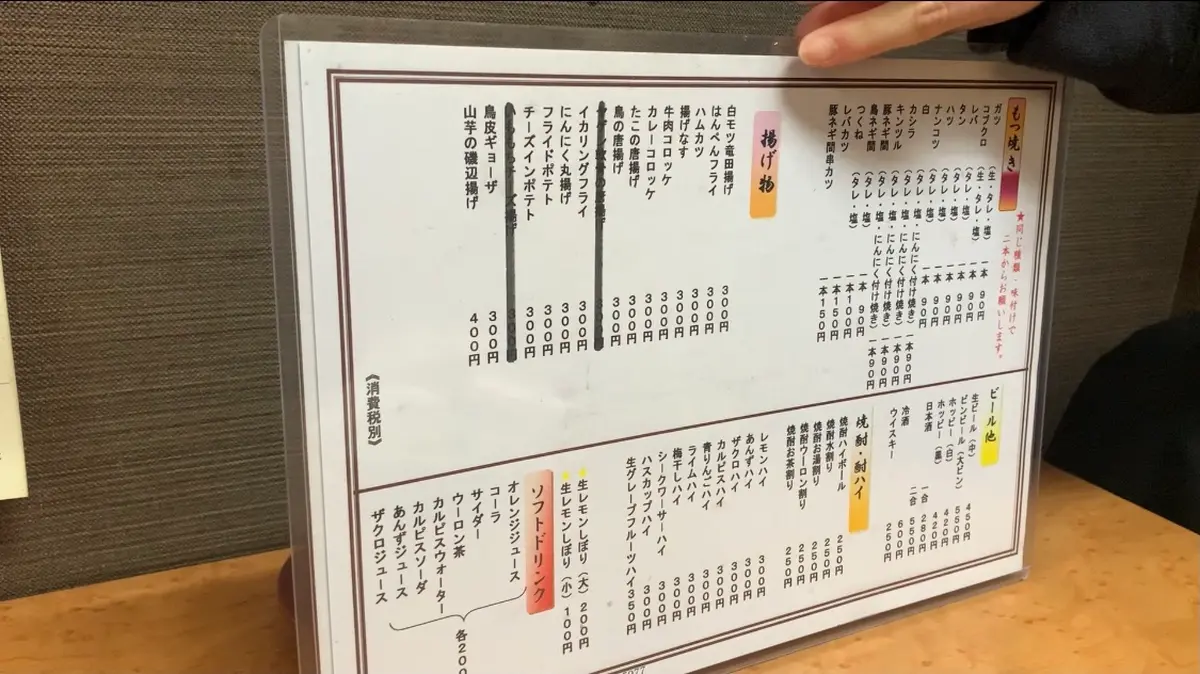 もつ焼き
★同じ種類・味付けで
二本からお願いします。
ガツ（生・タレ・塩）一本90円
コブクロ（生・タレ・塩）一本90円
レバ（タレ・塩）一本90円
タン（タレ・塩）一本90円
ハツ（タレ・塩）一本90円
ナンコツ（タレ・塩）一本90円
白（タレ・塩・にんにく付け焼き）一本90円
カシラ（タレ・塩・にんにく付け焼き）一本90円
キンツル（タレ・塩・にんにく付け焼き）一本90円
豚ネギ間（タレ・塩・にんにく付け焼き）一本90円
鳥ネギ間（タレ・塩）一本90円
つくね（タレ・塩）一本100円
レバカツ 一本150円
豚ネギ間串カツ 一本150円
揚げ物
白モツ竜田揚げ 300円
はんぺんフライ 300円
ハムカツ 300円
揚げなす 300円
牛肉コロッケ 300円
カレーコロッケ 300円
たこの唐揚げ 300円
鳥の唐揚げ 300円
イカリングフライ 300円
にんにく丸揚げ 300円
フライドポテト 300円
チーズインポテト 300円
鳥皮ギョーザ 300円
山芋の磯辺揚げ 400円
《消費税別》
ビール他
生ビール（中）450円
ビンビール（大ビン）550円
ホッピー（白）420円
ホッピー（黒）420円
日本酒 一合 280円
二合 550円
冷酒 600円
ウイスキー 250円
焼酎・酎ハイ
焼酎ハイボール 250円
焼酎水割り 250円
焼酎お湯割り 250円
焼酎ウーロン割り 250円
焼酎お茶割り 250円
レモンハイ 300円
あんずハイ 300円
ザクロハイ 300円
カルピスハイ 300円
青りんごハイ 300円
ライムハイ 300円
梅干しハイ 300円
シークワーサーハイ 300円
ハスカップハイ 300円
生グレープフルーツハイ 350円
★生レモンしぼり（大）200円
★生レモンしぼり（小）100円
ソフトドリンク
オレンジジュース
コーラ
サイダー
ウーロン茶
カルピスウォーター
カルピスソーダ
あんずジュース
ザクロジュース
各200円